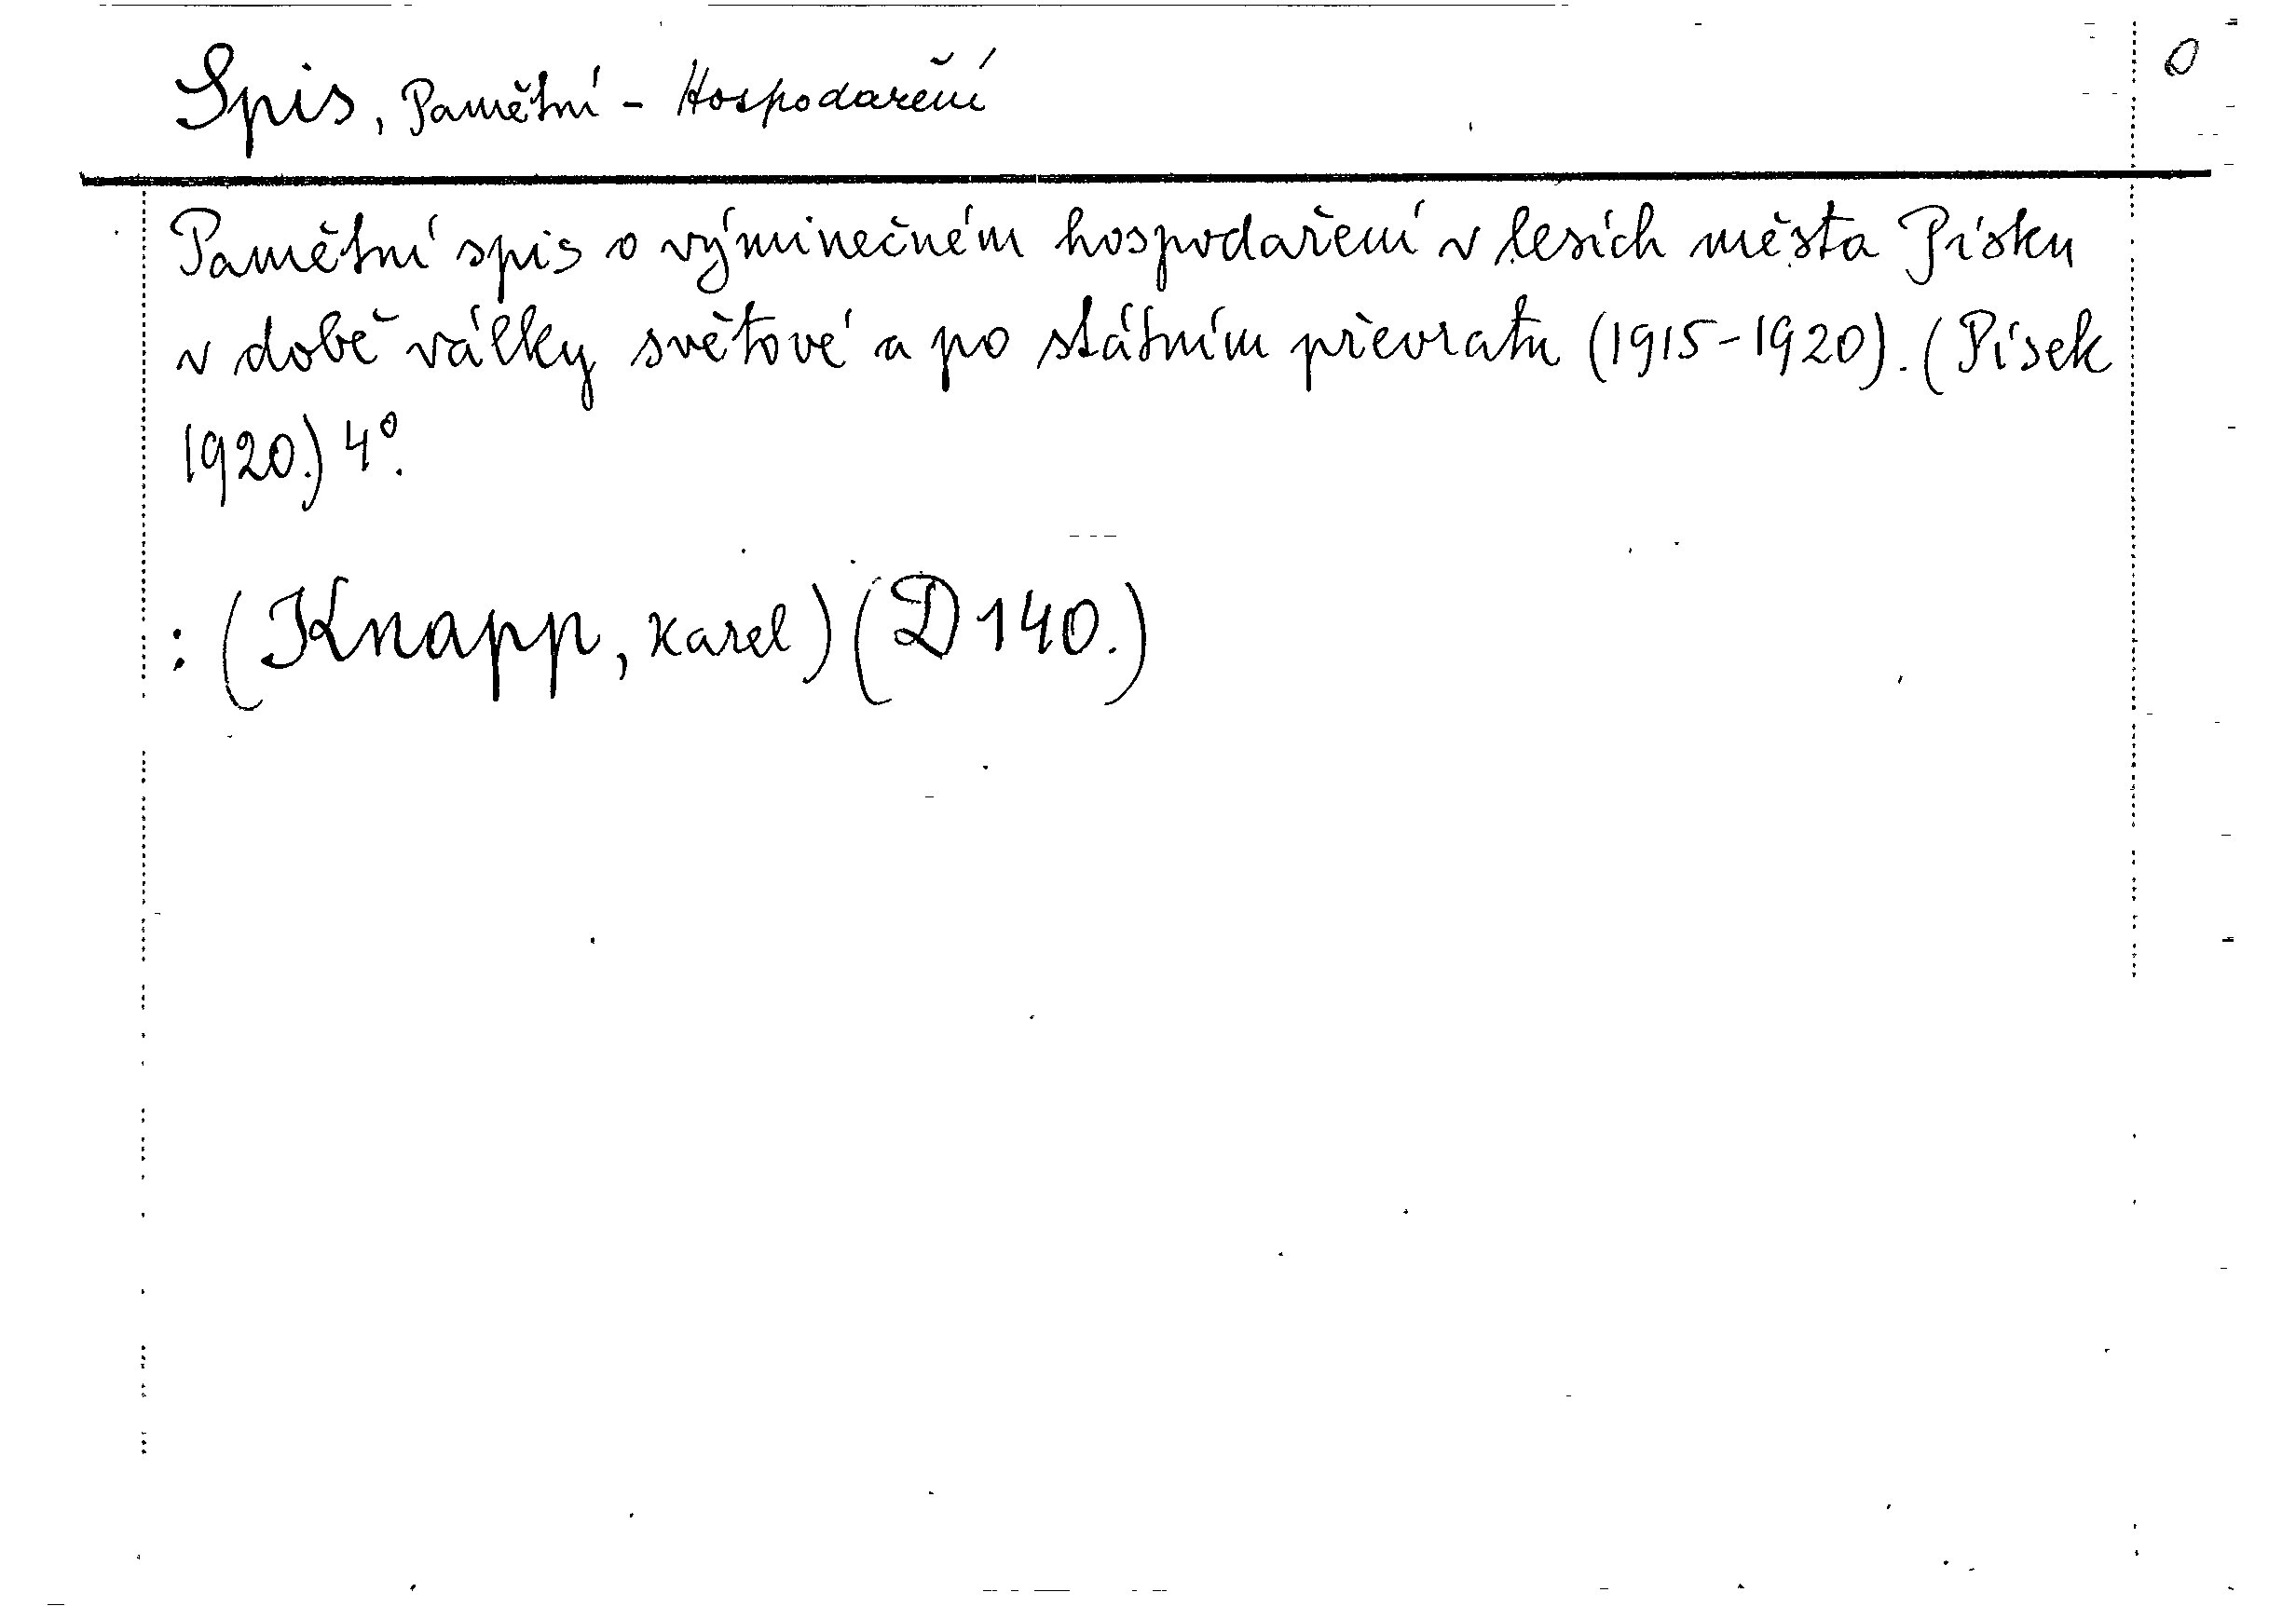 Spis, Pamětní - Hospodaření
0
Pamětní spis o výminečném hospodaření v lesích města Písku
v době války světové a po státním převratu (1915-1920). (Písek
1920.) 4°.
: (Knapp, Karel) (D 140.)